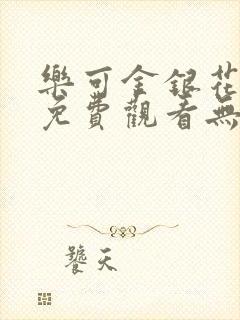 樂可金銀花
免費觀看無
饕天